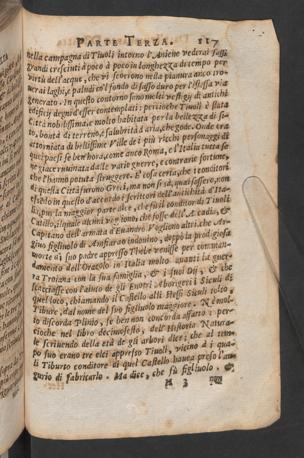 PARTE TERZA. 117
nella campagna di Tivoli intorno l'Aniene vederai sassi
grandi cresciuti à poco à poco in longhezza di tempo per
virtù dell'acque, che vi scorrono nella pianura anco tro
verai laghi, e paludi co'l fondo di sasso duro per l'istessa via
generato. In questo contorno sono molti vestigij di antichi
edificij degni d'esser contemplati: perciòche Tivoli è stata
Città nobilissima, e molto habitata per la bellezza di si-
to, bontà di terreno, e salubrità d'aria, che gode. Onde era
attorniata di bellissime Ville de i più ricchi personaggi di
quei paesi se ben'hora, come anco Roma, e l'Italia tutta se
ne giace ruinata da le varie guerre, e contrarie fortune,
che l'hanno potuta struggere. E' cosa certa, che i conditori
di questa Città furono Greci, ma non si sà, quai fossero, non
essendo in questo d'accordo i scrittori dell'antichità d'Ita-
lia, pur la maggior parte dice, che fù il conditor di Tivoli
Catillo, il quale alcuni vogliono, che fosse dell'Arcadia, &
Capitano dell'armata di Evandro. Vogliono altri, che Ar-
givo figliuolo di Amfiarao indovino, doppò la prodigiosa
morte di suo padre appresso Thebe venisse per comman-
damento dell'Oracolo in Italia molto quanti la guer-
ra Troiana con la sua famiglia, & i suoi Dei, & che
scacciasse con l'aiuto de gli Enotri Aborigeri i Siculi di
quel loco, chiamando il Castello alli stessi Siculi tolto,
Tibure, dal nome del suo figliuolo maggiore. Nè mol-
to discorda Plinio, se ben non concorda affatto: per-
cioche nel libro decimosesto, dell'Historia Natura-
le scrivendo della età de gli arbori dice; che al tem-
po suo erano tre elci appresso Tivoli, vicino à i qua-
li Tiburto conditore di quel Castello haueva preso l'au-
gurio di fabricarlo. Ma dice, che fù figliuolo, &
H 3 non